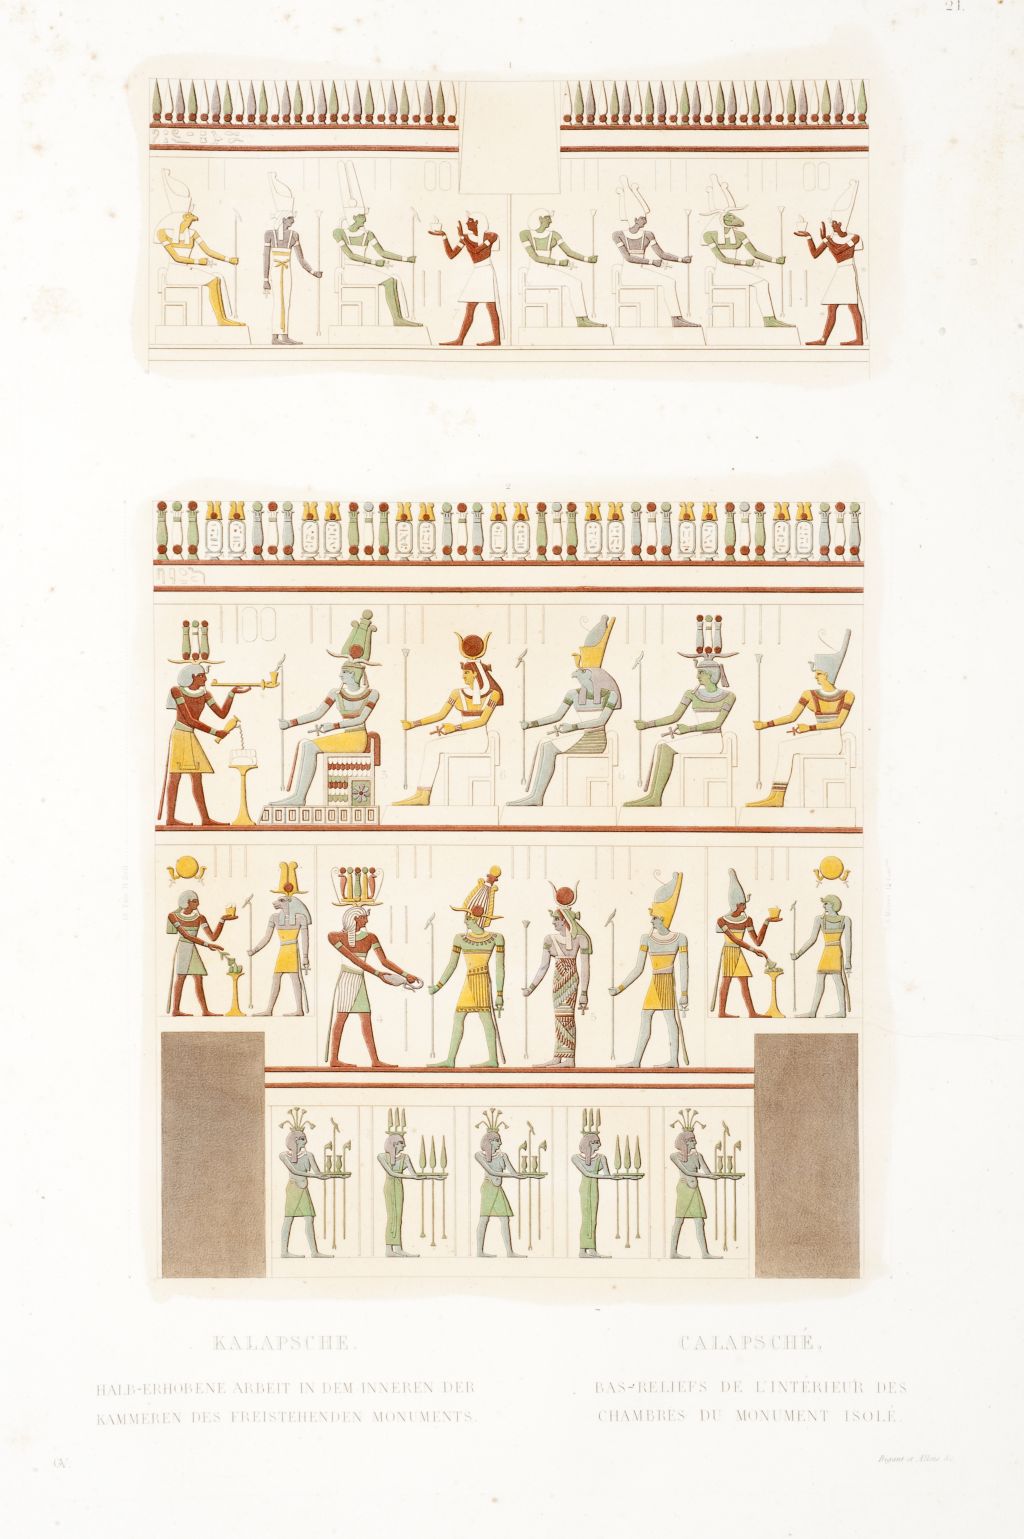 21.
1
2
KALAPSCHE.
HALB-ERHOBENE ARBEIT IN DEM INNEREN DER
KAMMEREN DES FREISTEHENDEN MONUMENTS.
CALAPSCHÉ.
BAS-RELIEFS DE L'INTÉRIEUR DES
CHAMBRES DU MONUMENT ISOLÉ.
GV.
Bigant et Allais sc.